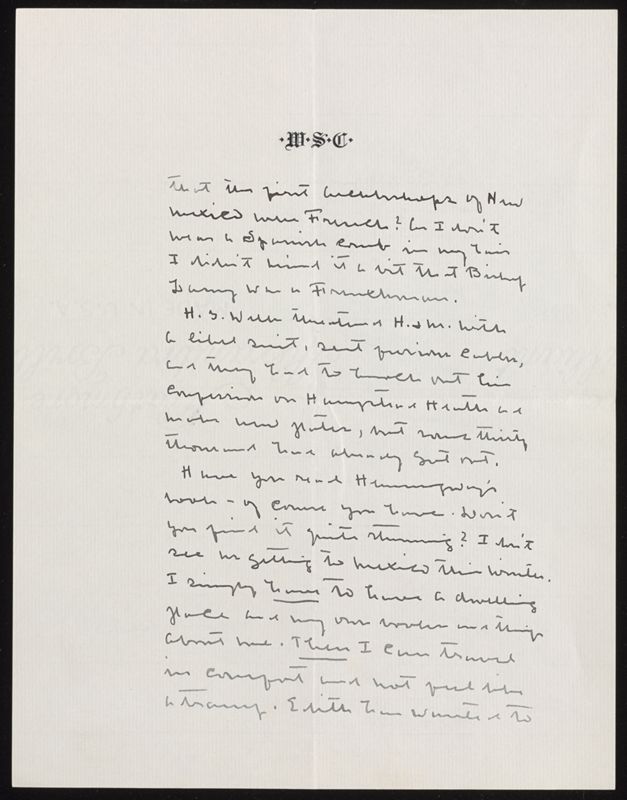 ·W·S·C·
that the first Archbishops of New
Mexico were French? As I don't
wear a Spanish comb in my hair
I didn't mind it a bit that Bishop
Lamy was a Frenchman.
H. G. Wells threatened H. & M. with
a libel suit, sent furious cables,
and they had to knock out his
confession on Hampstead Heath and
make new plates, but some thirty
thousand had already got out.
Have you read Hemingway's
book - of course you have. Don't
you find it quite stunning? I don't
see me getting to Mexico this winter.
I simply have to have a dwelling
place and my own books and things
about me. Then I can travel
in comfort and not feel like
a tramp. Edith has wanted to